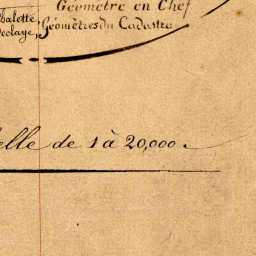 Géomètre en Chef
Géomètres du Cadastre
elle de 1 à 20,000.